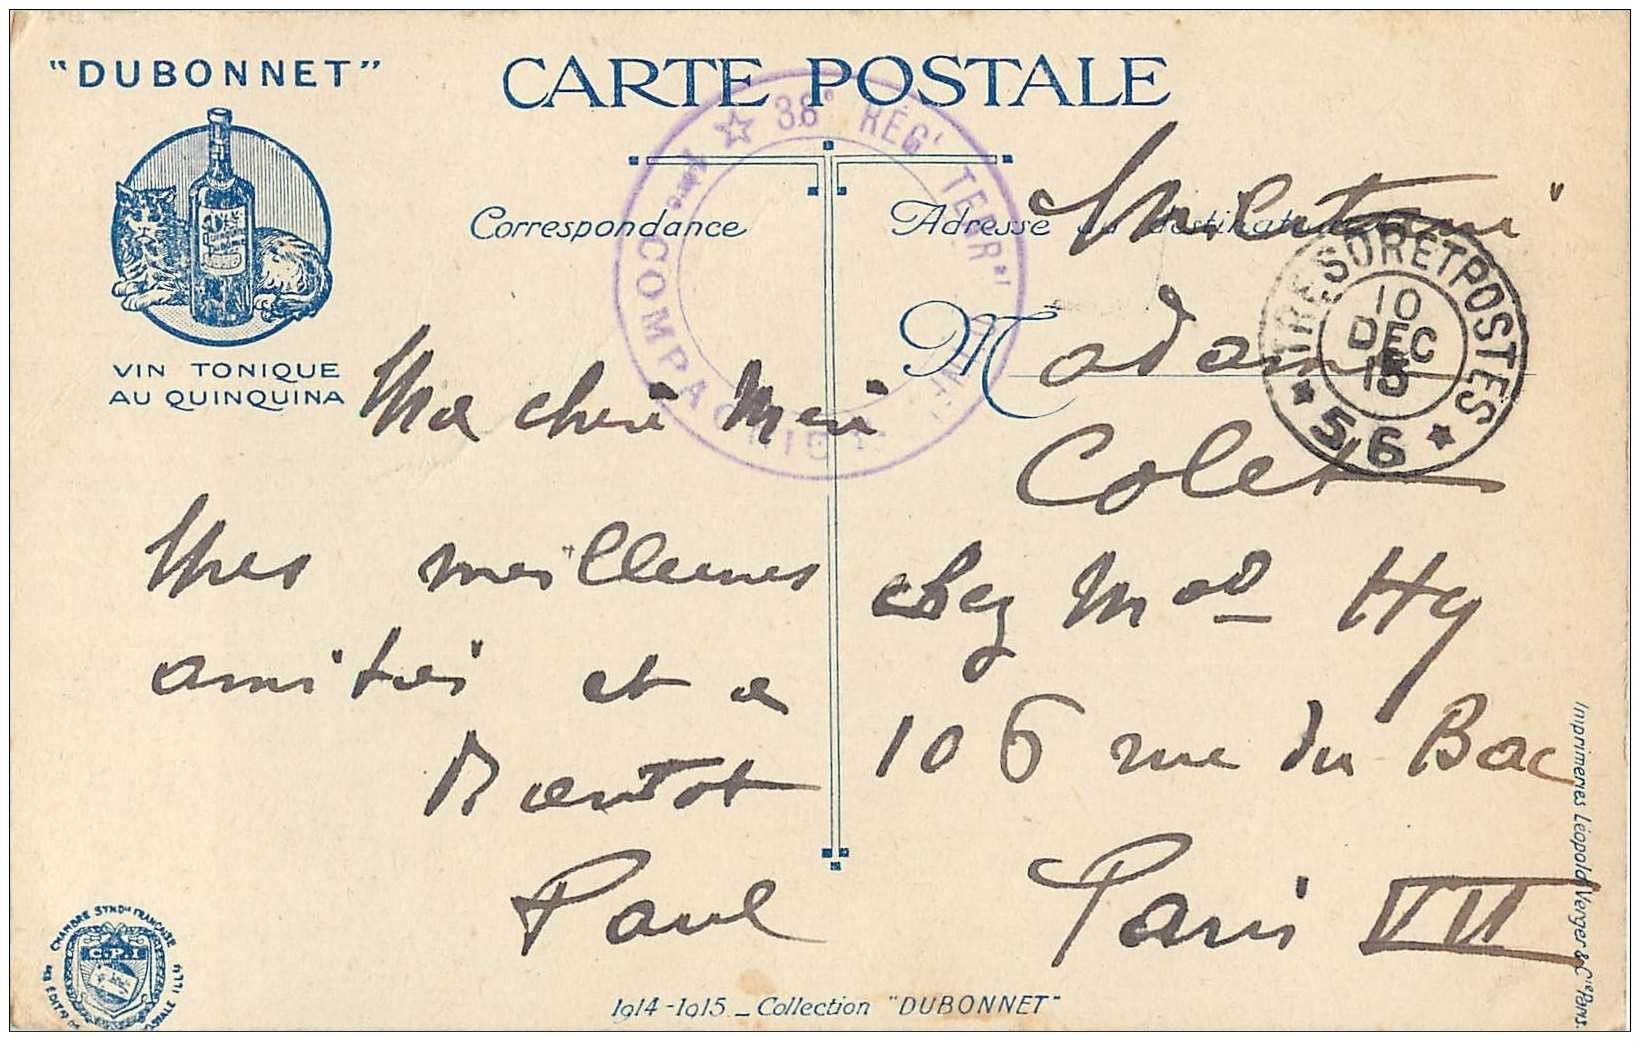 "DUBONNET"
CARTE POSTALE
VIN TONIQUE
AU QUINQUINA
38e RÉGt TERRal
COMPAGNIE
Correspondance
Adresse du destinataire
TRESOR ET POSTES
10
DEC
15
* 56 *
Ma chère Mère
Mes meilleures
amitiés et a
Bientot
Paul
Madame
Colet
chez Mad Hy
106 rue du Bac
Paris VII
Imprimeries Léopold Verger & Cie Paris.
CHAMBRE SYNDle FRANÇAISE
C.P.I
1914-1915 _ Collection "DUBONNET"